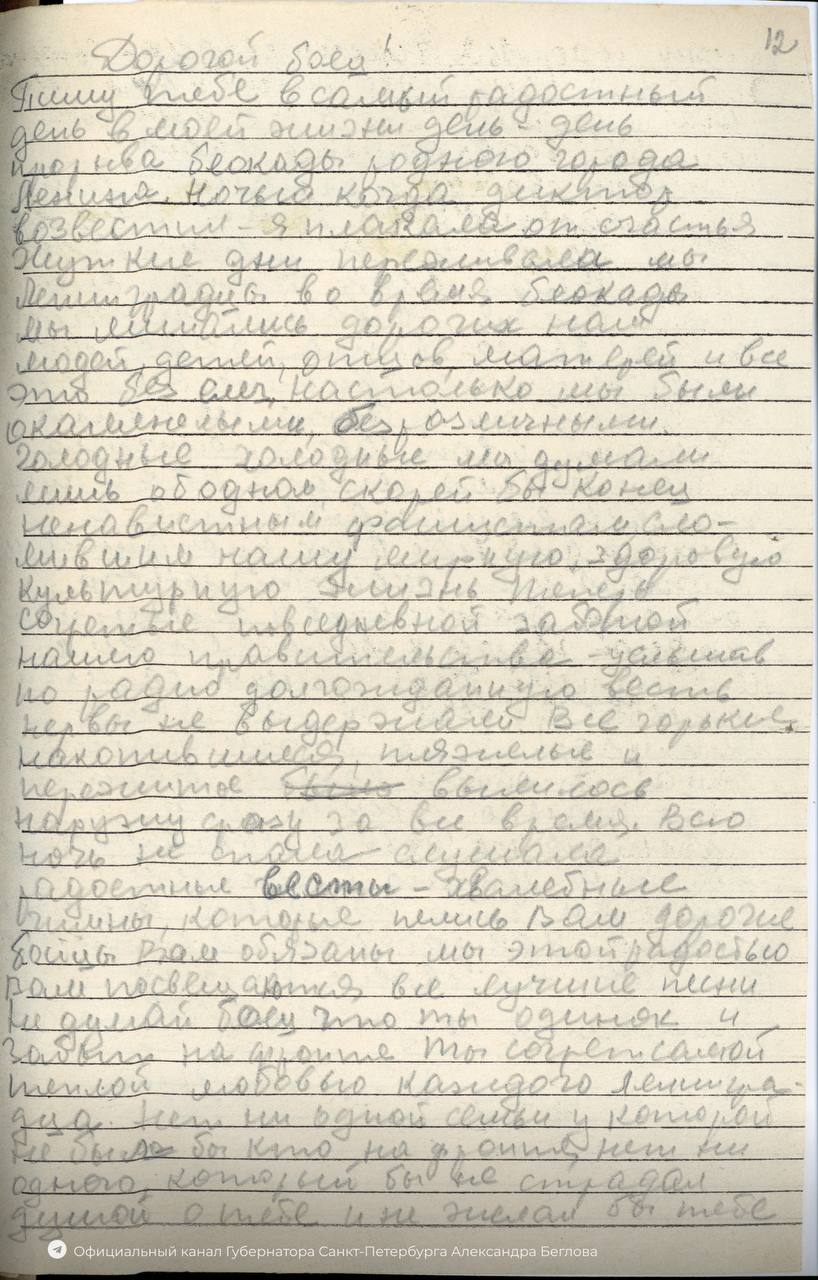 12
Дорогой боец!
Пишу тебе в самый радостный
день в моей жизни день - день
прорыва блокады родного города
Ленина. Ночью когда диктор
возвестил - я плакала от счастья
Жуткие дни переживала мы
Ленинградцы во время блокады
мы лишались дорогих нам
людей, детей, отцов, матерей и все
это без слез, настолько мы были
окаменелыми, безразличными.
Голодные холодные мы думали
лишь об одном, скорей бы конец
ненавистным фашистам, сло-
мившим нашу мирную, здоровую
культурную жизнь Теперь
согретые повседневной заботой
нашего правительства - услышав
по радио долгожданную весть
нервы не выдержали Все горькие,
накопившиеся, тяжелые и
пережитое было вылилось
наружу сразу за все время. Всю
ночь не спала слушала
радостные вести - хвалебные
гимны, которые пелись Вам дорогие
бойцы Вам обязаны мы этой радостью
Вам посвещаются все лучшие песни
Не думай боец что ты одинок и
Забыт на фронте Ты согрет самой
теплой любовью каждого Ленингра-
дца. Нет ни одной семьи у которой
не было бы кто на фронте, нет ни
одного, который бы не страдал
душой о тебе и не желал бы тебе
Официальный канал Губернатора Санкт-Петербурга Александра Беглова